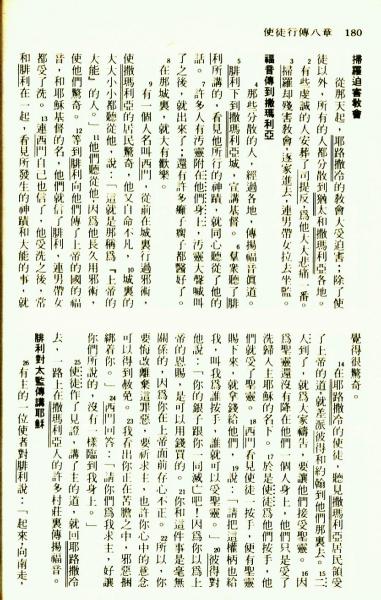 使徒行傳八章 180
掃羅迫害教會
從那天起，耶路撒冷的教會大受迫害；除了使
徒以外，所有的人都分散到猶太和撒瑪利亞各地。
2有些虔誠的人安葬了司提反，爲他大大悲痛一番。
3掃羅却殘害教會，逐家進去，連男帶女拉去坐監。
福音傳到撒瑪利亞
4那些分散的人，經過各地，傳揚福音眞道。
5腓利下到撒瑪利亞城，宣講基督。6羣衆聽了腓
利所講的，看見他所行的神蹟，就同心聽從了他的
話。7許多人有汚靈附在他們身上，汚靈大聲喊叫
了之後，就出來了；還有許多癱子瘸子都醫好了。
8在那城裏，就大有歡樂。
9有一個人名叫西門，從前在城裏行過邪術，
使撒瑪利亞的居民驚奇，他又自命不凡，10城裏的
大大小小都聽從他，說：「這就是那稱爲『上帝的
大能』的人。」11他們聽從他，因爲他長久用邪術，
使他們驚奇。12等到腓利向他們傳了上帝的國的福
音，和耶穌基督的名，他們就信了腓利，連男帶女
都受了洗。13連西門自己也信了；他受洗之後，常
和腓利在一起，看見所發生的神蹟和大能的事，就
覺得很驚奇。
14在耶路撒冷的使徒，聽見撒瑪利亞居民領受
了上帝的道，就差派彼得和約翰到他們那裏去。15二
人到了，就爲大家禱告，要讓他們接受聖靈。16因
爲聖靈還沒有降在他們一個人身上，他們只是受了
洗歸入主耶穌的名下。17於是使徒爲他們按手，他
們就受了聖靈。18西門看見使徒一按手，便有聖靈
賜下來，就拿錢給他們，19說：「請把這權柄也給
我，叫我爲誰按手，誰就可以受聖靈。」20彼得對
他說：「你的銀子跟你一同滅亡吧！因爲你以爲上
帝的恩賜，是可以用錢買的。21你和這件事是毫無
關係的，因爲你在上帝面前存心不正。22所以，你
要悔改離棄這罪惡，要祈求主，也許你心中的意念
可以得到赦免。23我看出你正在苦膽之中，邪惡捆
綁着你。」24西門回答：「請你們爲我求主，好讓
你們所說的，沒有一樣臨到我身上。」
25使徒作了見證，講了主的道，就回耶路撒冷
去，一路上在撒瑪利亞人的許多村莊裏傳揚福音。
腓利對太監傳講耶穌
26有主的一位使者對腓利說：「起來，向南走，